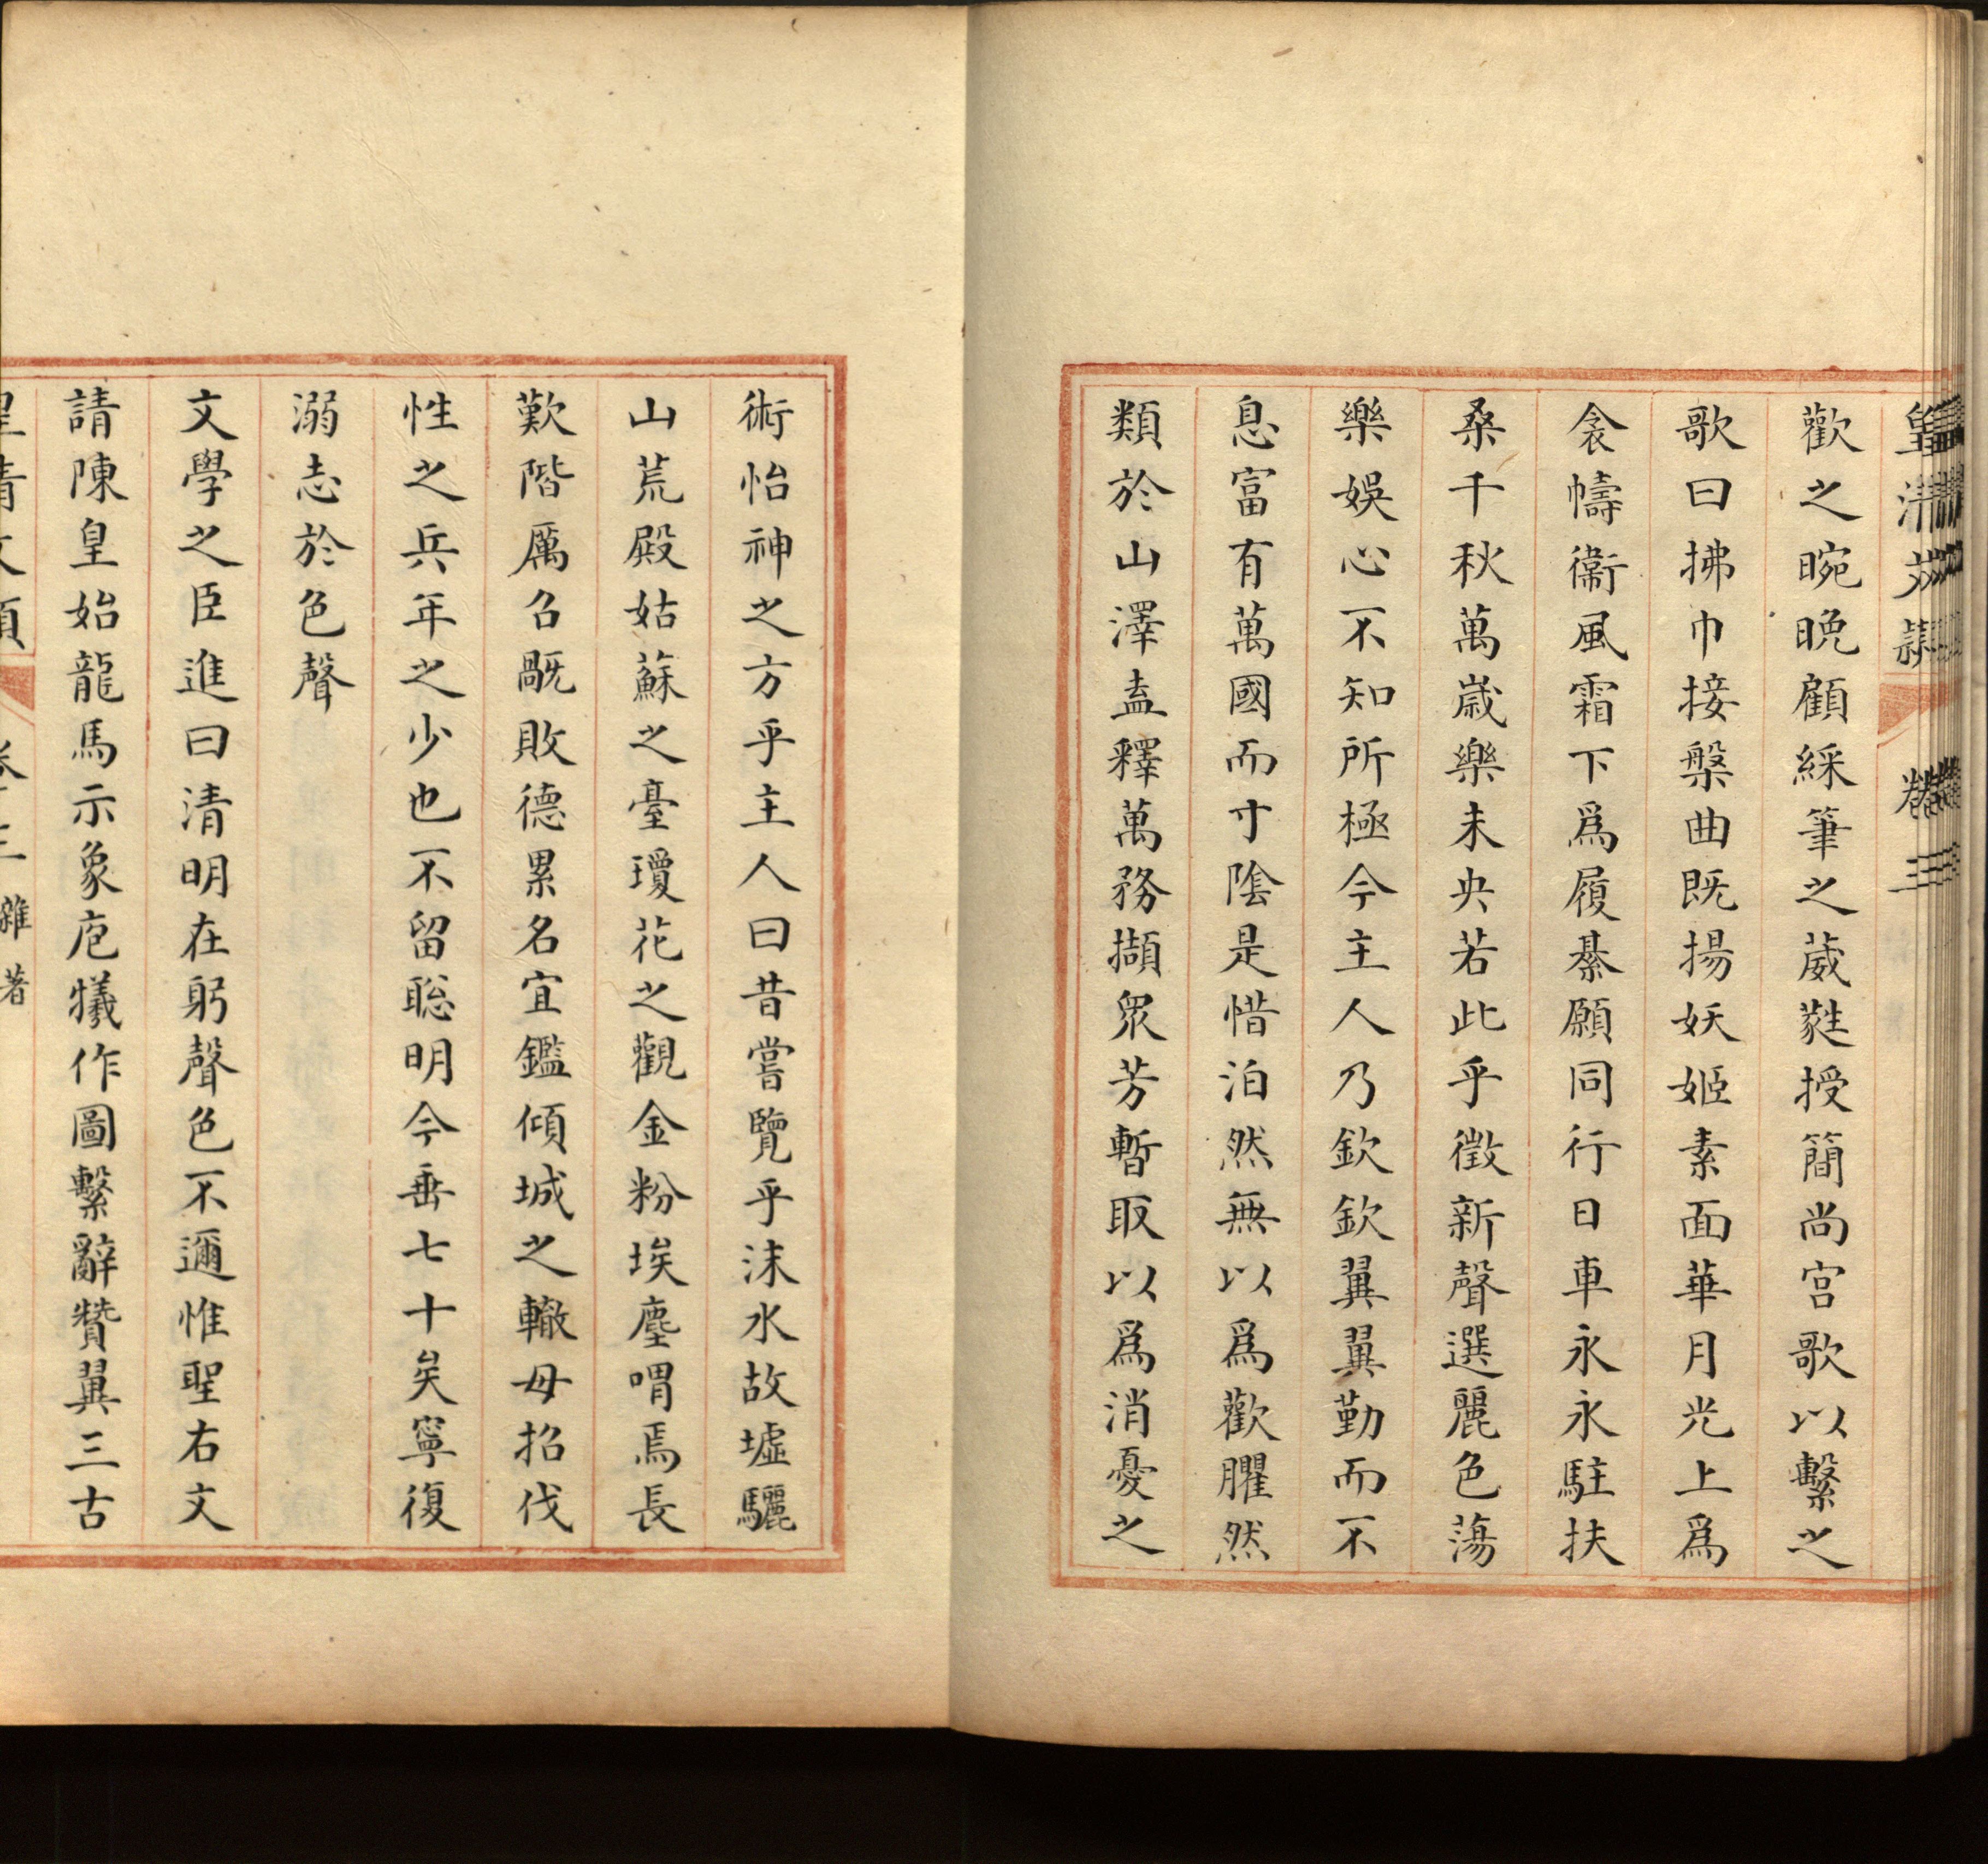 皇清文頴 卷三
歡之晼晚顧綵筆之葳蕤授簡尚宫歌以繫之
歌曰拂巾接槃曲既揚妖姬素面華月光上爲
衾幬衞風霜下爲履綦願同行日車永永駐扶
桑千秋萬歲樂未央若此乎徵新聲選麗色蕩
樂娛心不知所極今主人乃欽欽翼翼勤而不
息富有萬國而寸陰是惜泊然無以爲歡臞然
類於山澤盍釋萬務擷衆芳暫取以爲消憂之
術怡神之方乎主人曰昔嘗覽乎沬水故墟驪
山荒殿姑蘇之臺瓊花之觀金粉埃塵喟焉長
歎階厲召厩敗德累名宜鑑傾城之轍毋招伐
性之兵年之少也不留聡明今垂七十矣寧復
溺志於色聲
文學之臣進曰清明在躬聲色不邇惟聖右文
請陳皇始龍馬示象庖犧作圖繫辭贊翼三古
皇清文頴 卷三 雜著